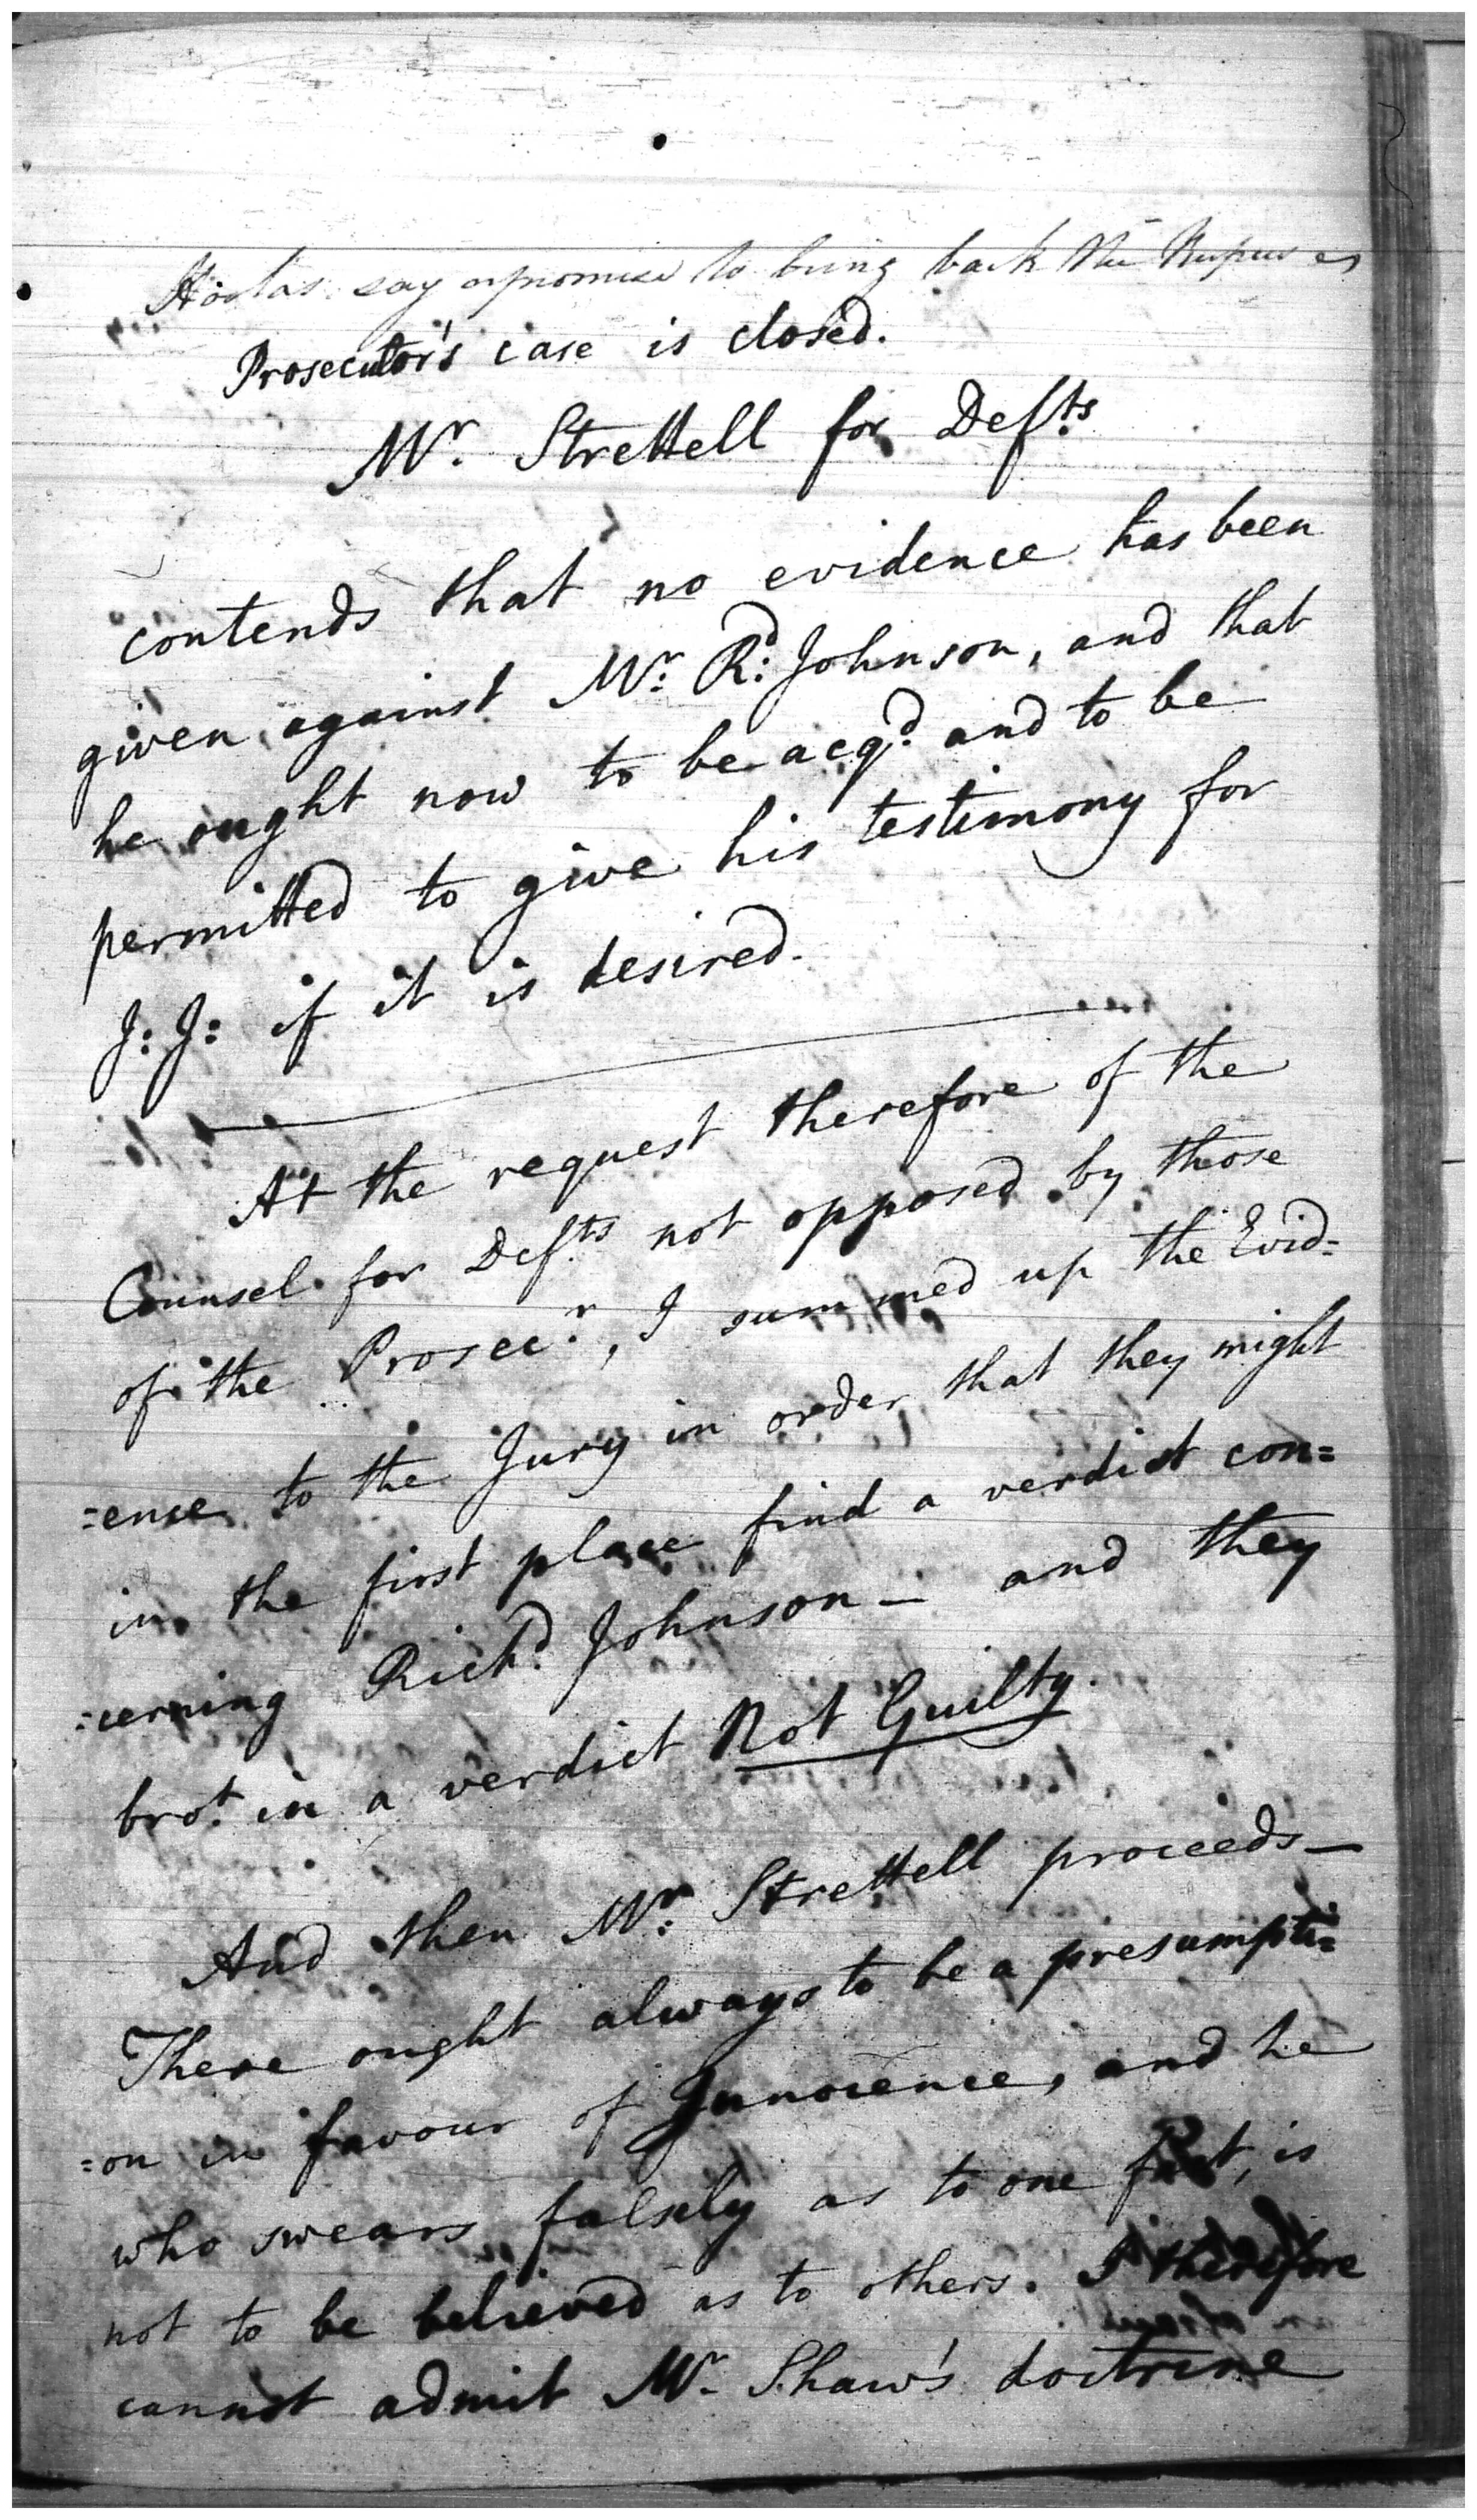 say promised to bring back the Rupees
Prosecutor's case is closed.
Mr. Strettell for Defts
contends that no evidence has been
given against Mr. Rd. Johnson, and that
he ought now to be acqd. and to be
permitted to give his testimony for
J: J: if it is desired.
At the request therefore of the
Counsel for Defts. not opposed by those
of the Prosecr., I summed up the Evid=
=ence to the Jury in order that they might
in the first place find a verdict con=
=cerning Richd. Johnson — and they
brot. in a verdict Not Guilty.
And then Mr. Strettell proceeds —
There ought always to be a presumpti=
=on in favour of Innocence, and he
who swears falsely as to one fact, is
not to be believed as to others. I therefore
cannot admit Mr. Shaw's doctrine